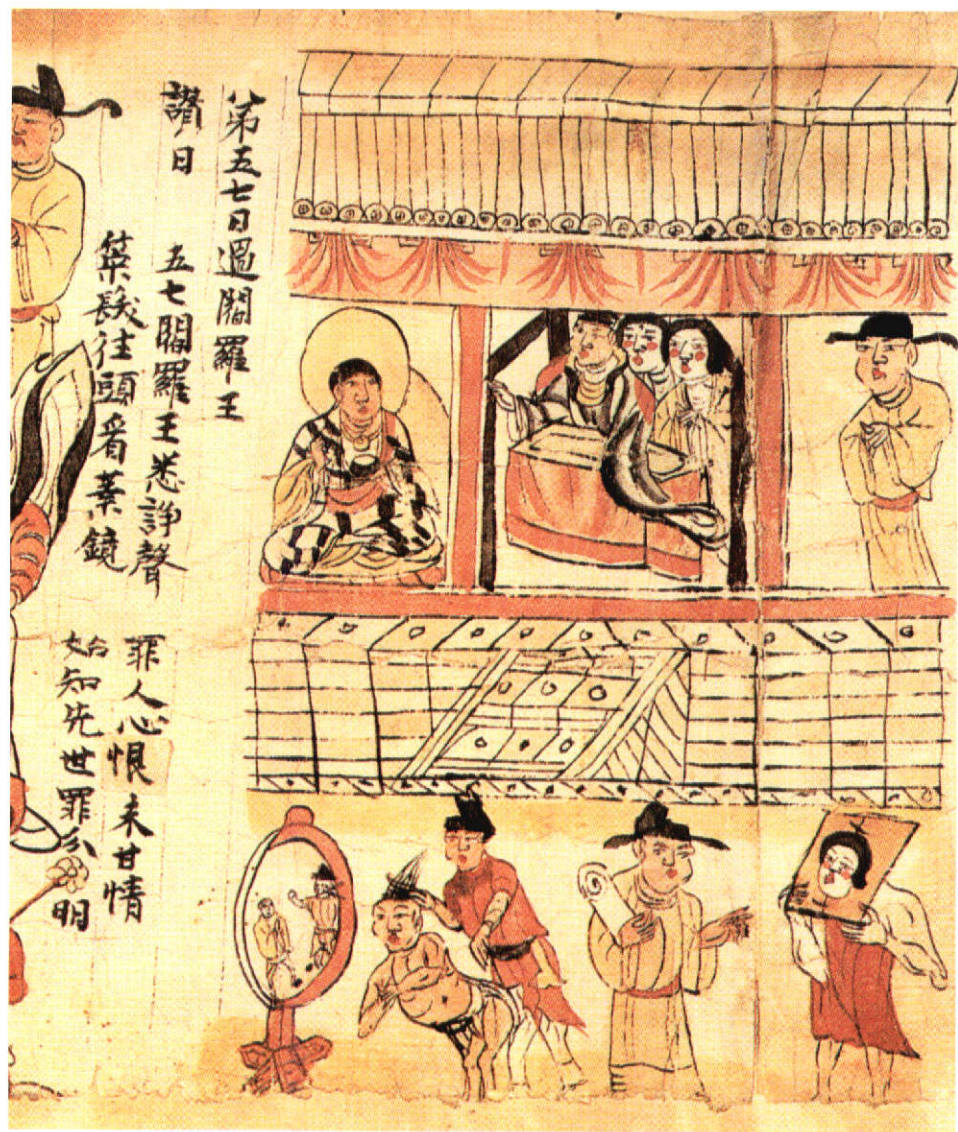 第五七日過閻羅王
讚曰 五七閻羅王悉諍聲 罪人心恨未甘情
策髮往頭看業鏡 始知先世罪分明